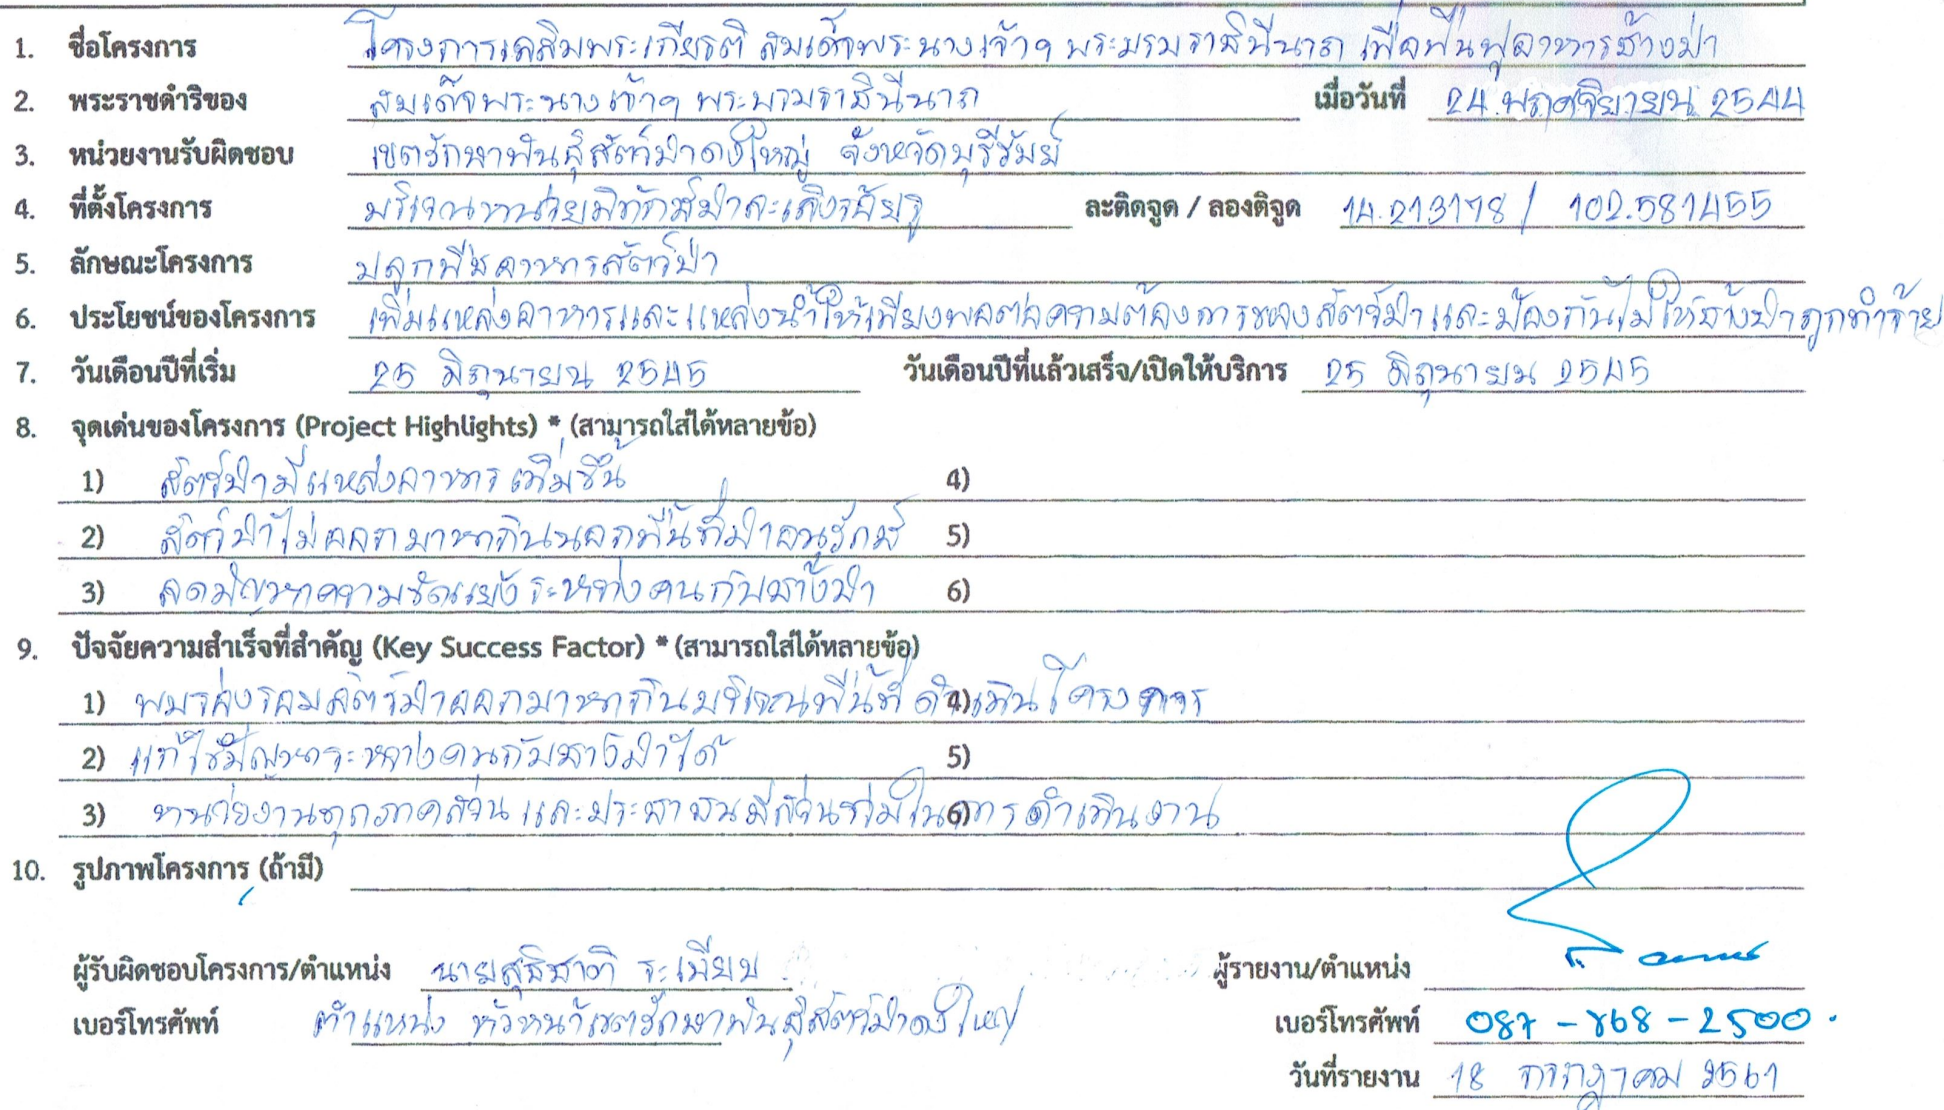 1. ชื่อโครงการ โครงการเฉลิมพระเกียรติ สมเด็จพระนางเจ้าฯ พระบรมราชินีนาถ เพื่อฟื้นฟูอาหารช้างป่า
2. พระราชดำริของ สมเด็จพระนางเจ้าฯ พระบรมราชินีนาถ เมื่อวันที่ 24 พฤศจิยายน 2544
3. หน่วยงานรับผิดชอบ เขตรักษาพันธุ์สัตว์ป่าดงใหญ่ จังหวัดบุรีรัมย์
4. ที่ตั้งโครงการ บริเวณหน่วยพิทักษ์ป่าละเลิงร้อยรู ละติดจูด / ลองติจูด 14.213178 / 102.581455
5. ลักษณะโครงการ ปลูกพืชอาหารสัตว์ป่า
6. ประโยชน์ของโครงการ เพิ่มแหล่งอาหารและแหล่งน้ำให้เพียงพอต่อความต้องการของสัตว์ป่าและป้องกันไม่ให้ช้างป่าถูกทำร้าย
7. วันเดือนปีที่เริ่ม 25 มิถุนายน 2545 วันเดือนปีที่แล้วเสร็จ/เปิดให้บริการ 25 มิถุนายน 2545
8. จุดเด่นของโครงการ (Project Highlights) * (สามารถใส่ได้หลายข้อ)
1) สัตว์ป่ามีแหล่งอาหารเพิ่มขึ้น 4)
2) สัตว์ป่าไม่ออกมาหากินนอกพื้นที่ป่าอนุรักษ์ 5)
3) ลดปัญหาความขัดแย้งระหว่างคนกับช้างป่า 6)
9. ปัจจัยความสำเร็จที่สำคัญ (Key Success Factor) * (สามารถใส่ได้หลายข้อ)
1) พบร่องรอยสัตว์ป่าออกมาหากินบริเวณพื้นที่ดำเนินโครงการ 4)
2) แก้ไขปัญหาระหว่างคนกับช้างป่าได้ 5)
3) หน่วยงานทุกภาคส่วนและประชาชนมีส่วนร่วมในการดำเนินงาน 6)
10. รูปภาพโครงการ (ถ้ามี)
ผู้รับผิดชอบโครงการ/ตำแหน่ง นายสุทธิชาติ ระเมียบ ผู้รายงาน/ตำแหน่ง
เบอร์โทรศัพท์ ตำแหน่ง หัวหน้าเขตรักษาพันธุ์สัตว์ป่าดงใหญ่ เบอร์โทรศัพท์ 087-868-2500.
วันที่รายงาน 18 กรกฎาคม 2561